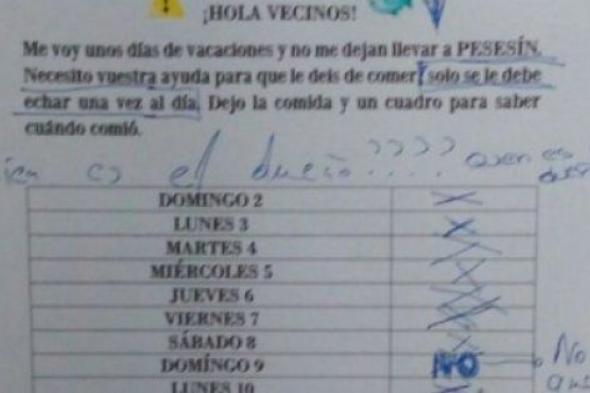 ¡HOLA VECINOS!
Me voy unos días de vacaciones y no me dejan llevar a PESESÍN.
Necesito vuestra ayuda para que le deis de comer, solo se le debe
echar una vez al día. Dejo la comida y un cuadro para saber
cuándo comió.
es el dueño????
DOMINGO 2
LUNES 3
MARTES 4
MIÉRCOLES 5
JUEVES 6
VIERNES 7
SÁBADO 8
DOMÍNGO 9 NO No
LUNES 10